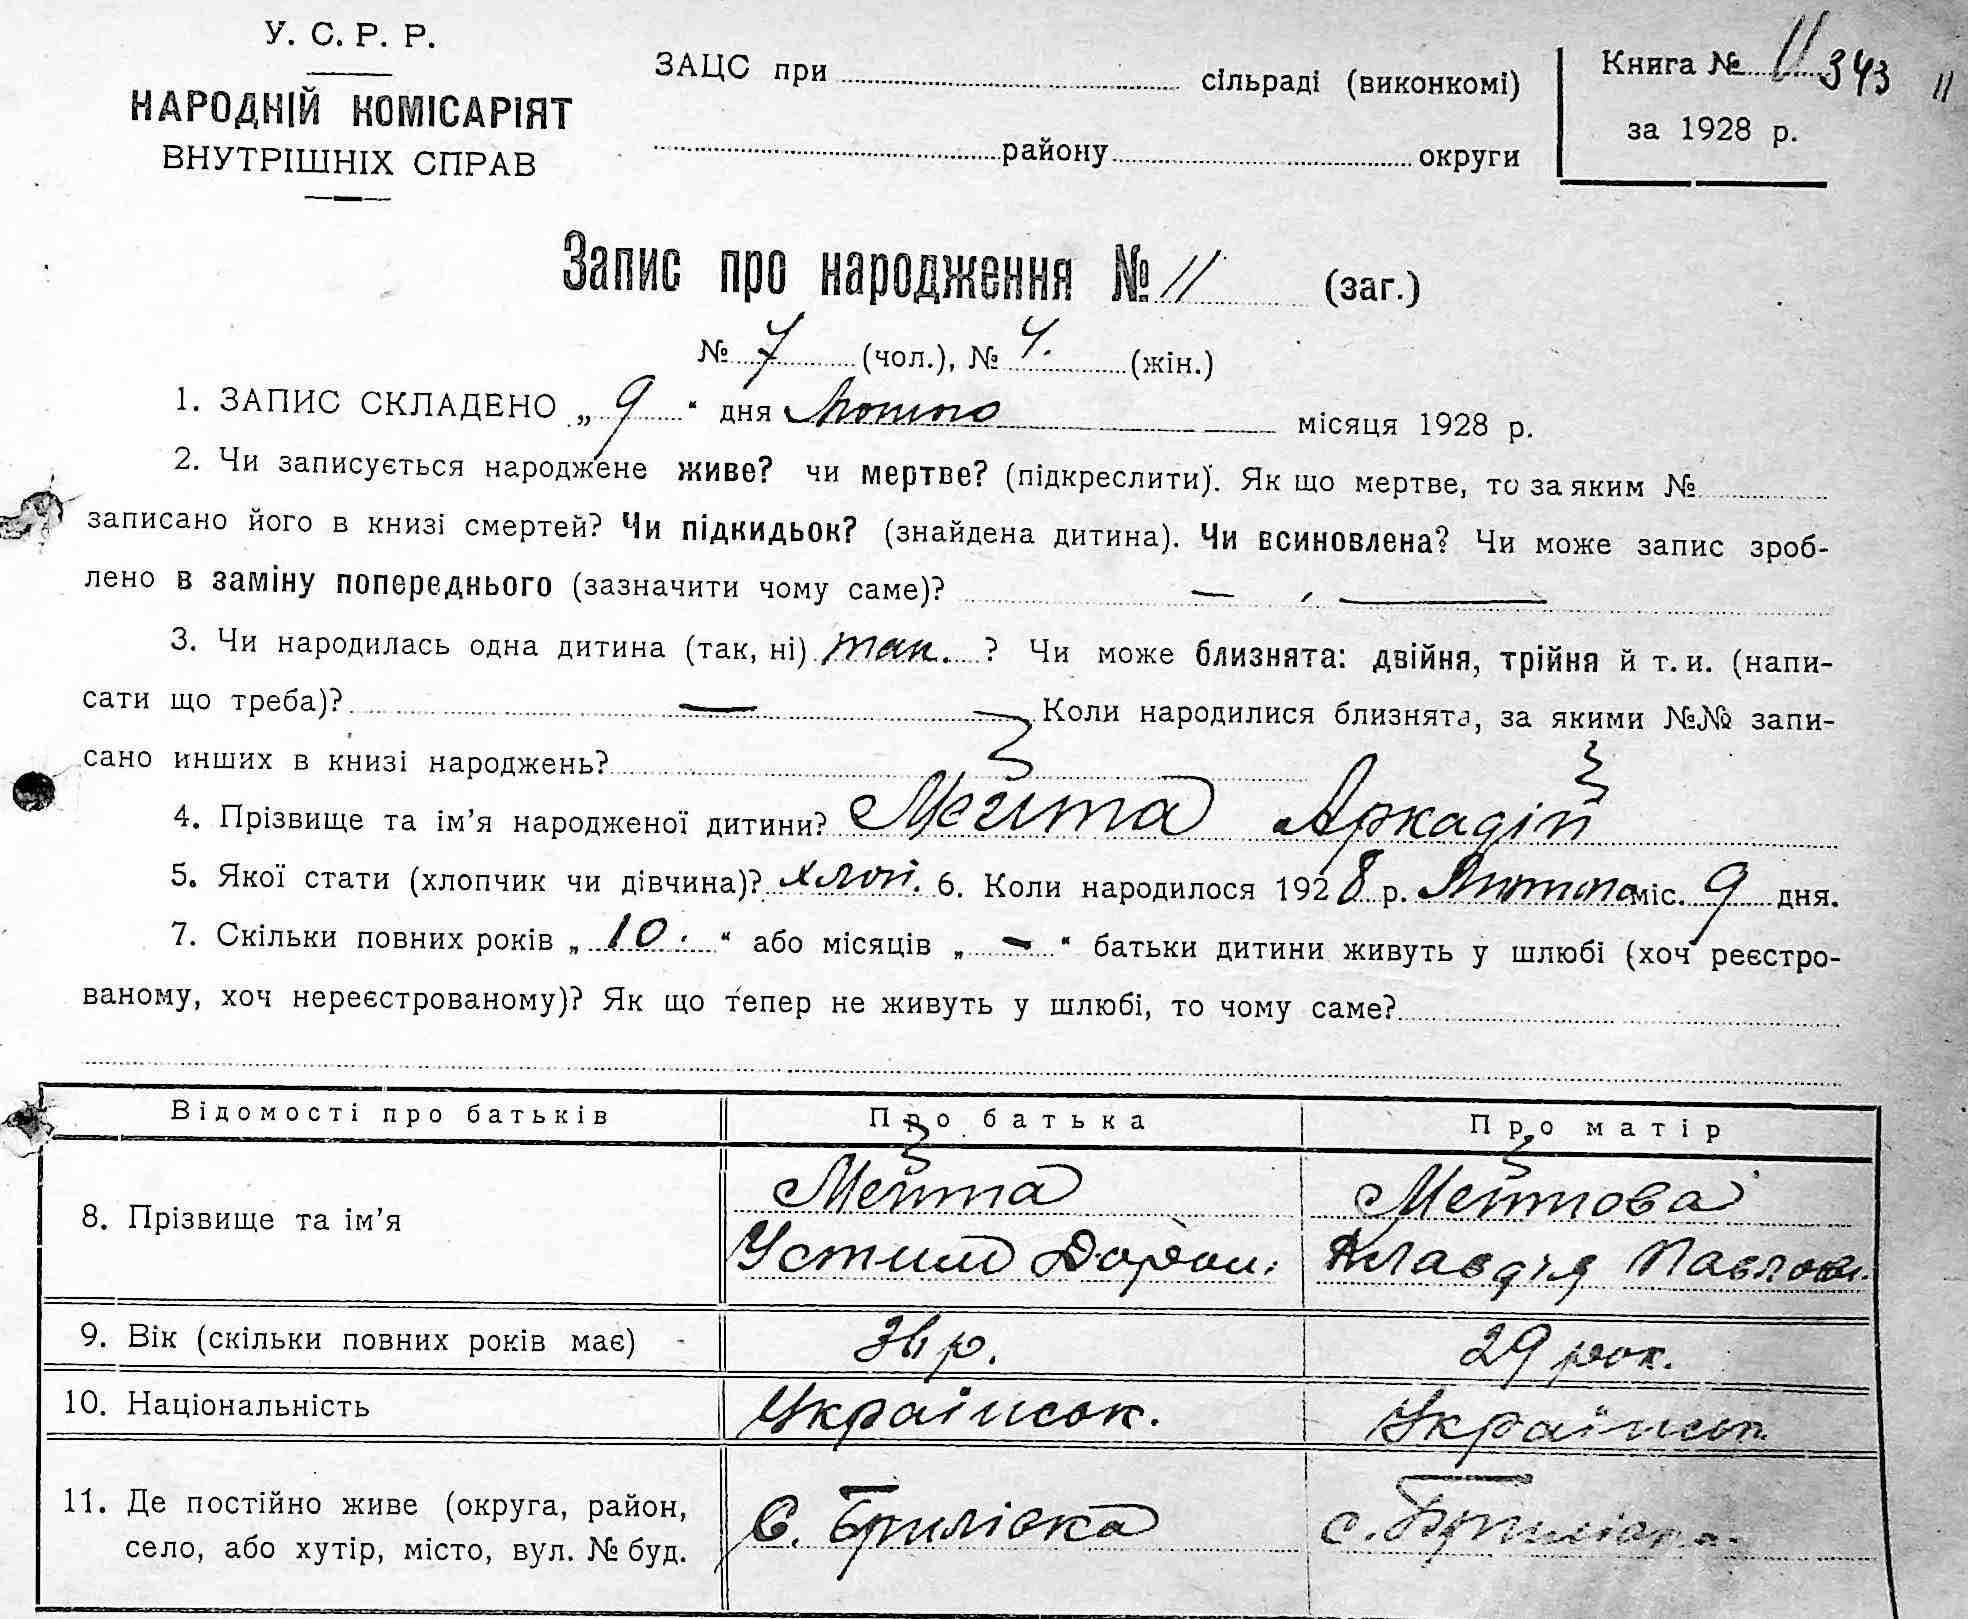 У. С. Р. Р.
НАРОДНІЙ КОМІСАРІЯТ
ВНУТРІШНІХ СПРАВ
ЗАЦС при сільраді (виконкомі)
району округи
Книга № 11 343 11
за 1928 р.
Запис про народження № 11 (заг.)
№ 7 (чол.), № 4. (жін.)
1. ЗАПИС СКЛАДЕНО „ 9 “ дня Лютого місяця 1928 р.
2. Чи записується народжене живе? чи мертве? (підкреслити). Як що мертве, то за яким №
записано його в книзі смертей? Чи підкидьок? (знайдена дитина). Чи всиновлена? Чи може запис зроб-
лено в заміну попереднього (зазначити чому саме)? —
3. Чи народилась одна дитина (так, ні) так. ? Чи може близнята: двійня, трійня й т. и. (напи-
сати що треба)? — Коли народилися близнята, за якими №№ запи-
сано инших в книзі народжень?
4. Прізвище та ім’я народженої дитини? Мейта Аркадій
5. Якої стати (хлопчик чи дівчина)? хлоп. 6. Коли народилося 1928 р. Лютого міс. 9 дня.
7. Скільки повних років „ 10. “ або місяців „ – “ батьки дитини живуть у шлюбі (хоч реєстро-
ваному, хоч нереєстрованому)? Як що тепер не живуть у шлюбі, то чому саме?
Відомості про батьків Про батька Про матір
8. Прізвище та ім’я Мейта Мейтова
Устим Клавдія Павлов.
9. Вік (скільки повних років має) 36 р. 29 рок.
10. Національність Українськ. Українськ.
11. Де постійно живе (округа, район,
село, або хутір, місто, вул. № буд. С. Брилівка с. Брилівка